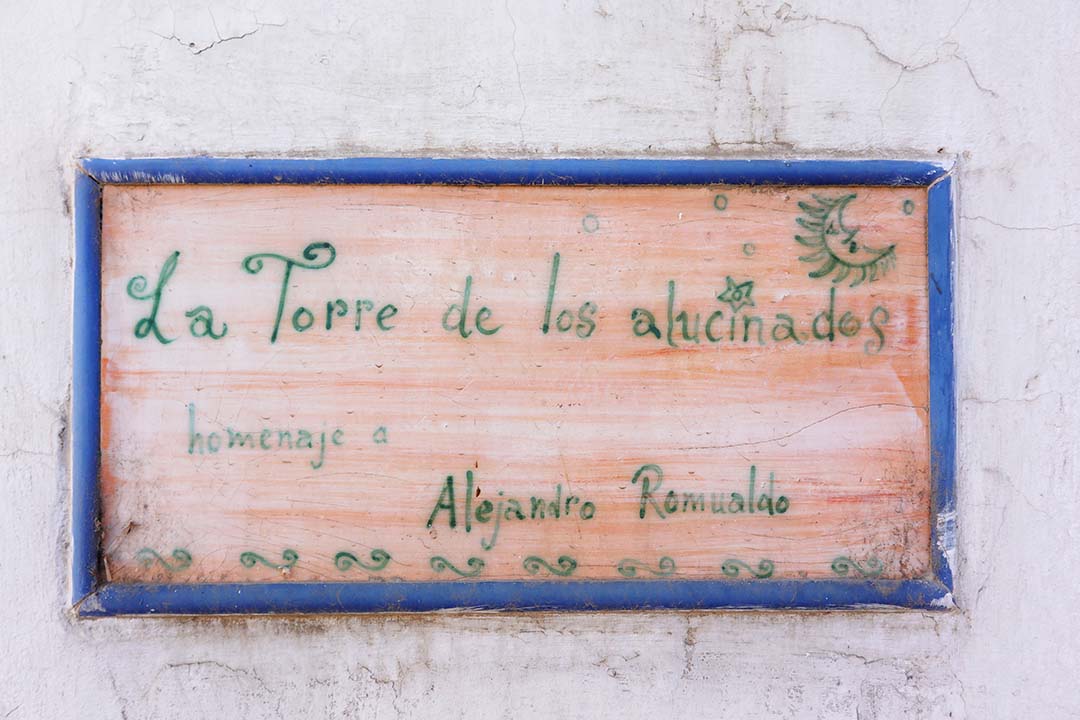 La Torre de los alucinados
homenaje a
Alejandro Romualdo